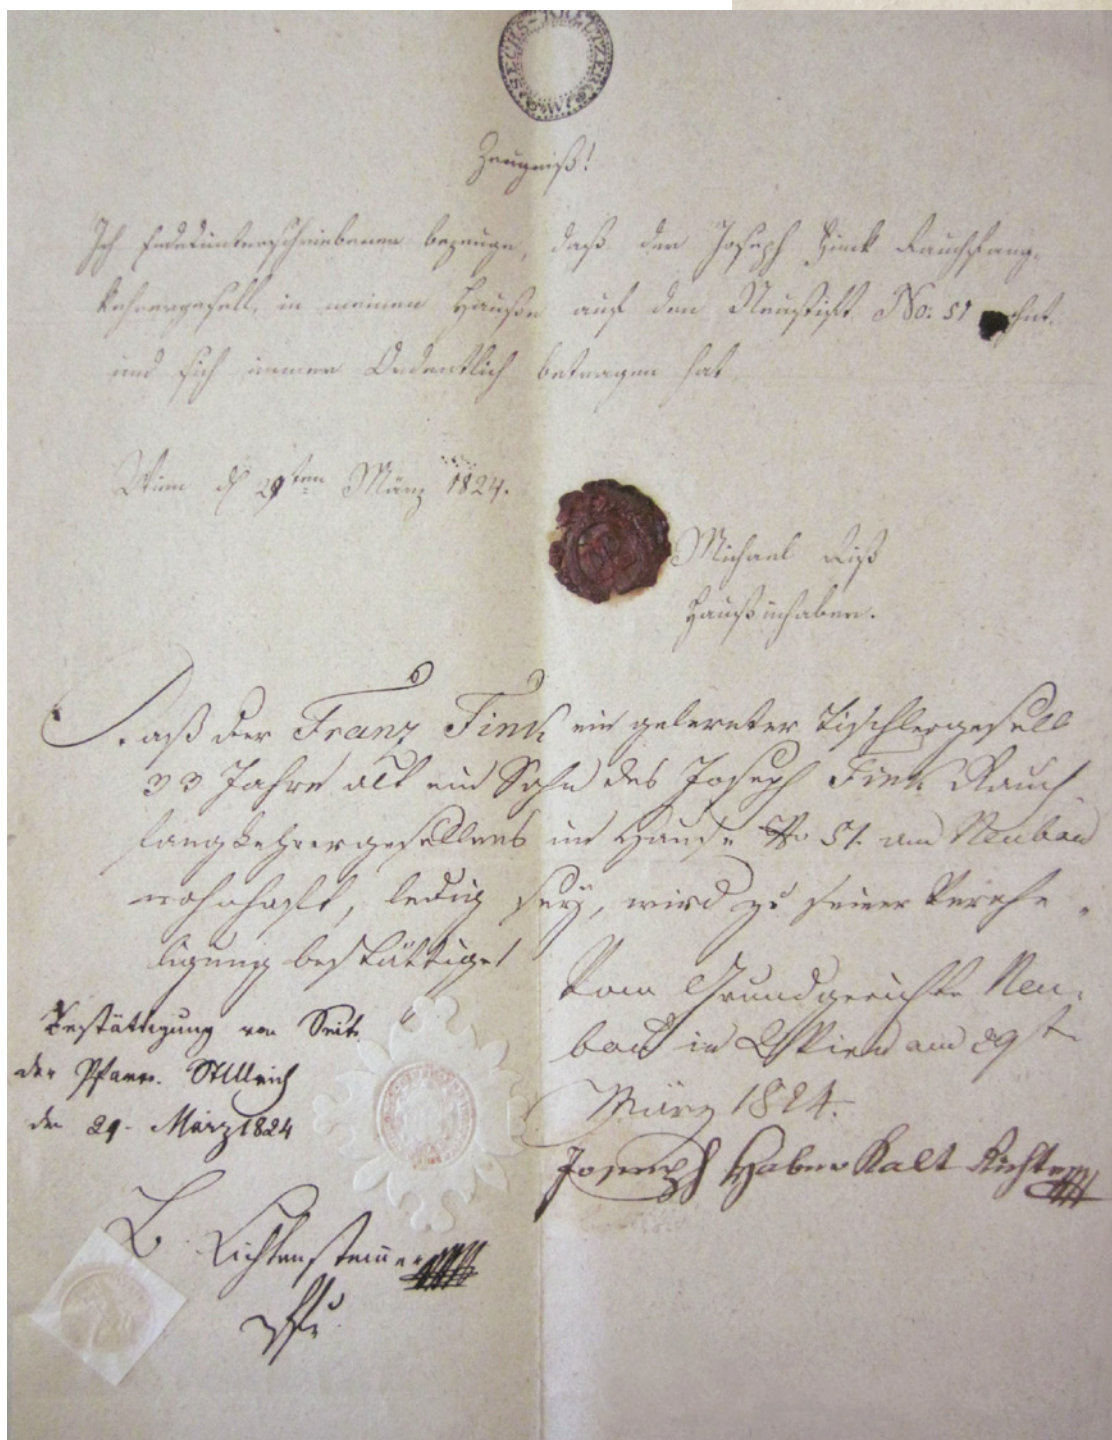 SECHS KREUTZER C.M.
Zeugniß!
Ich Endesunterschriebener bezeuge, daß der Joseph Finck Rauchfang-
kehrergesell, in meinen Hauße auf den Neustift No: 51 wohnt.
und sich immer Ordentlich betragen hat
Wien d 29ten März 1824.
Michael Riß
Haußinhaber.
Daß der Franz Fink ein gelernter Tischlergesell
33 Jahre alt ein Sohn des Joseph Fink Rauch
fangkehrergesellens im Hause No 51. am Neubau
wohnhaft, ledig sey, wird zu seiner Vereheligung
bestättiget
Vom Grundgerichte Neu-
bau in Wien am 29st
März 1824.
Joseph Haberkalt Richter
Bestättigung von Seite
der Pfarr. St Ulrich
den 29. März 1824
L. Lichtensteiner